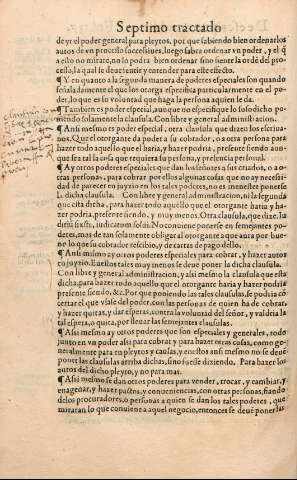 Septimo tractado
de yr el poder general para pleytos, por que sabiendo bien ordenar los
autos de vn processo succesiuos, luego sabra ordenar vn poder, y el q̃
a esto no mirare, no lo podra bien ordenar sino siente la ordẽ del pro-
cesso, la qual se deue sentir y entender para este effecto.
¶ Y en quanto a la segunda manera de poderes especiales son quando
señaladamente el que los otorga especifica particularmente en el po-
der, lo que es su voluntad que haga la persona a quien le da.
¶ Tambien es poder special, aunque no especifique lo suso dicho po-
niendo solamente la clausula. Con libre y general administracion.
¶ Ansi mesmo es poder special, otra clausula que dizen los escriua-
nos. Que el otorgante da poder a su cobrador, o a otra persona para
hazer todo aquello que el haria, y hazer podria, presente siendo aun
que sea tal la cosa que requiera su persona, y presencia personal.
¶ Ay otros poderes speciales que dan los señores a sus criados, o a o-
tras personas, para cobrar por ellos algunas cosas que no ay necessi-
dad de parecer en juyzio en los tales poderes, no es menester ponerse
la dicha clausula. Con libre y general administracion, ni la segunda
que esta dicha, para hazer todo aquello que el otorgante haria y ha-
zer podria, presente siendo, y muy menos. Otra clausula, que dize. Iu
dicio sisti, iudicatum solui. No conuiene ponerse en semejantes po-
deres, mas de tan solamente obligar al otorgante a que aura por bue-
no lo que su cobrador rescibio, y de cartas de pago dello.
¶ Ansi mismo ay otros poderes especiales para cobrar, y hazer autos
en juyzio. En estos tales muy menos se deue poner la dicha clausula.
Con libre y general administracion, y assi mesmo la clausula que esta
dicha, para hazer todo aquello que el otorgante haria y hazer podria
presente siendo, &c. Por que poniendo las tales clausulas, se podria cõ
certar el que vsase del poder, con las personas de quien ha de cobrar,
y hazer quitas, y dar esperas, contra la voluntad del señor, y valdria la
tal espera, o quita, por lleuar las semejantes clausulas.
¶ Assi mesmo ay otros poderes que son especiales y generales, todo
junto en vn poder assi para cobrar y para hazer otras cosas, como ge-
neralmente para en pleytos y causas, y en estos ansi mesmo no se deuẽ
poner las clausulas arriba dichas, sino fuesse diziendo. Para hazer los
autos del dicho pleyto, y no para mas.
¶ Assi mesmo se dan otros poderes para vender, trocar, y cambiar, y
enagenar, y hazer pactos, y conueniencias, con otras personas, fiando
de los procuradores, o personas a quien se dan los tales poderes, que
miraran lo que conuiene a aquel negocio, entonces se deuẽ poner las